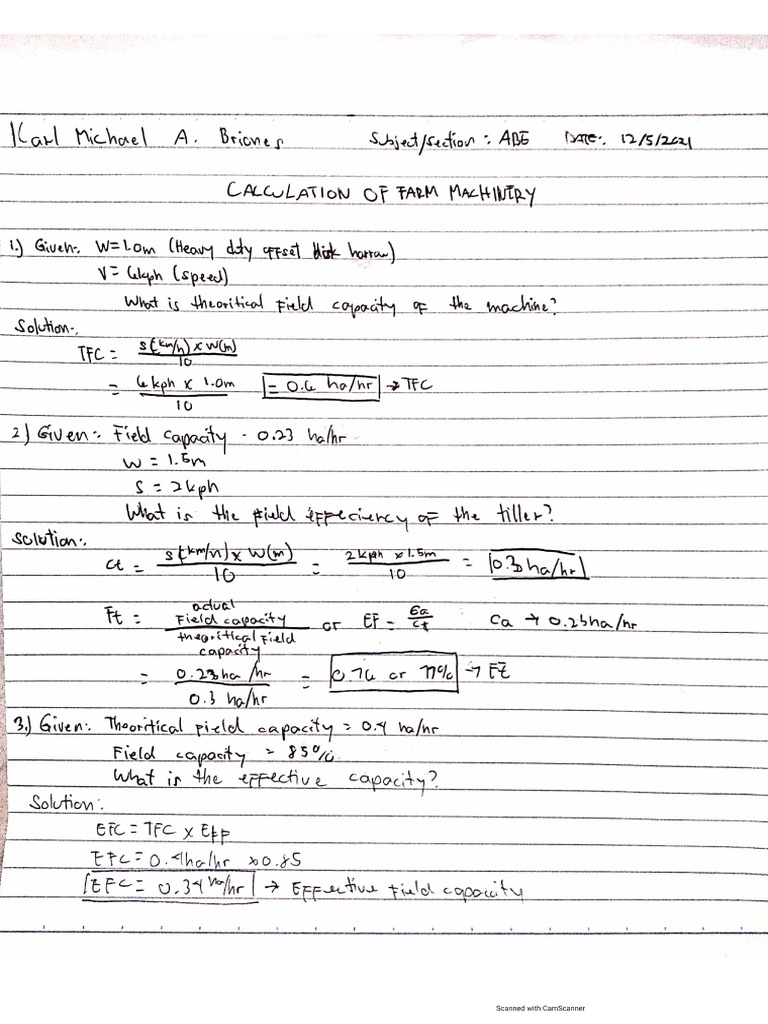 Karl Michael A. Briones Subject/section : ABE DATE:. 12/5/2021
CALCULATION OF FARM MACHINTRY
1.) Given:. W=1.0m (Heavy duty offset disk harrow)
V= 6kph (speed)
What is theoritical field capacity of the machine?
Solution:.
TFC = s(km/h) x W(m)
10
= 6kph x 1.0m = 0.6 ha/hr → TFC
10
2) Given:. Field capacity - 0.23 ha/hr
W = 1.5m
S = 2kph
What is the field effeciency of the tiller?
Solution:.
Ct = s(km/h) x W(m) = 2kph x 1.5m = 0.30 ha/hr
10 10
Ft = actual field capacity or EF = Ca Ca → 0.23ha/hr
theoritical field Ct
capacity
= 0.23ha /hr = 0.76 or 77% → FE
0.3 ha/hr
3.) Given:. Theoritical field capacity = 0.4 ha/hr
Field capacity = 85%
What is the effective capacity?
Solution:.
EFC = TFC x Eff
EFC = 0.4ha/hr x0.85
EFC = 0.34 ha/hr → Effective field capacity
Scanned with CamScanner